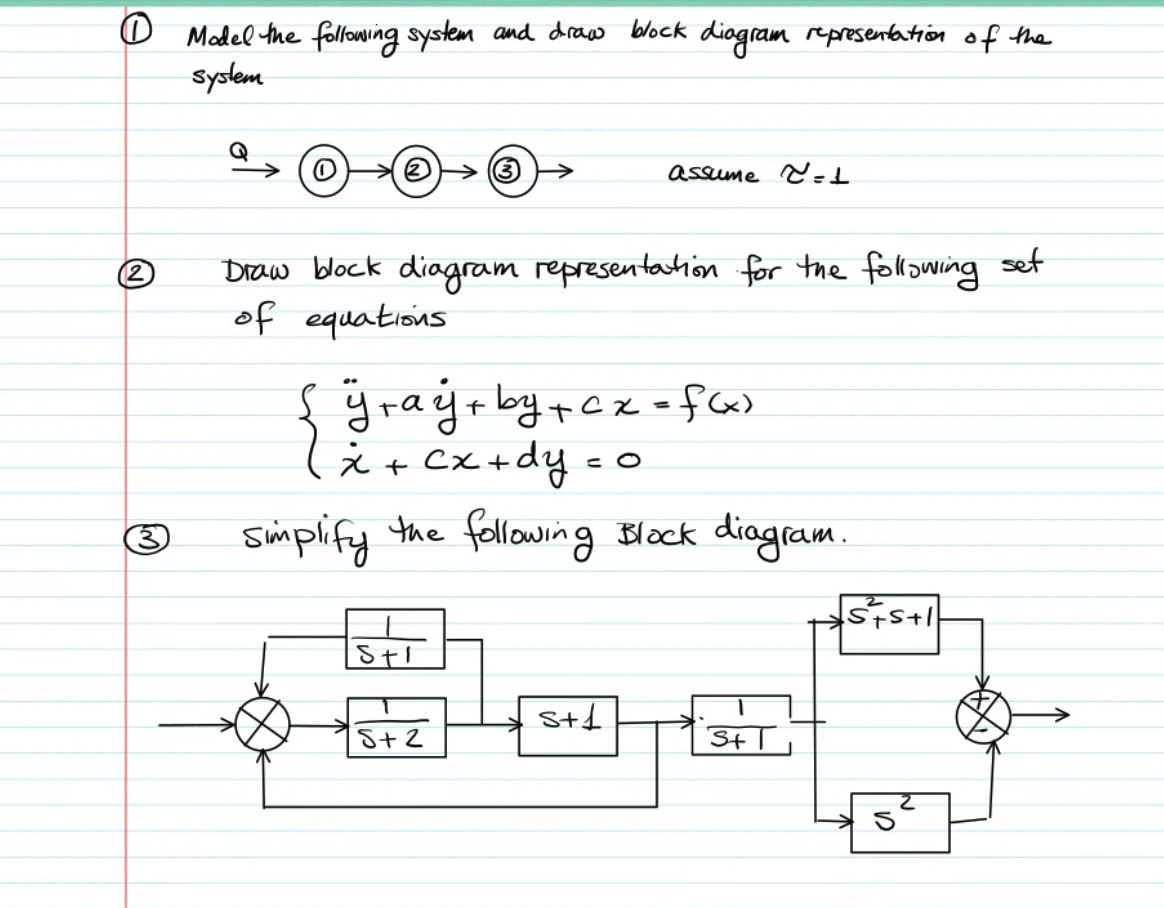 ① Model the following system and draw block diagram representation of the
system
Q
① ② ③ assume τ=1
② Draw block diagram representation for the following set
of equations
ÿ+aẏ+by+cx=f(x)
ẋ+cx+dy=0
③ simplify the following Block diagram.
1
s+1
s²+s+1
1
s+2
s+1
1
s+1
+
-
s²